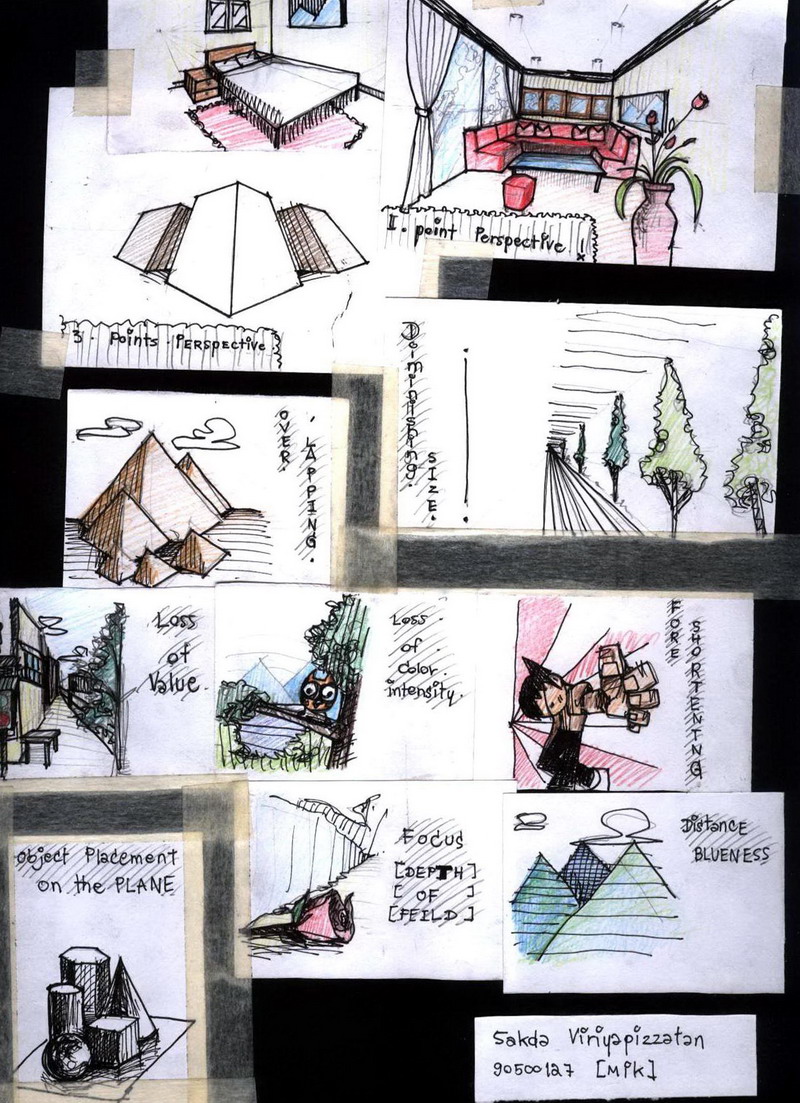 1. point Perspective
3. Points. PERSPECTIVE.
Diminishing.
SIZE.
OVER.
LAPPING.
Loss
of
Value.
Loss
of
color
intensity.
FORE
SHORTENING
Object Placement
on the PLANE
Focus
[DEPTH]
[ OF ]
[FEILD]
Distance
BLUENESS
Sakda Viriyapizzatan
90500127 [MPK]